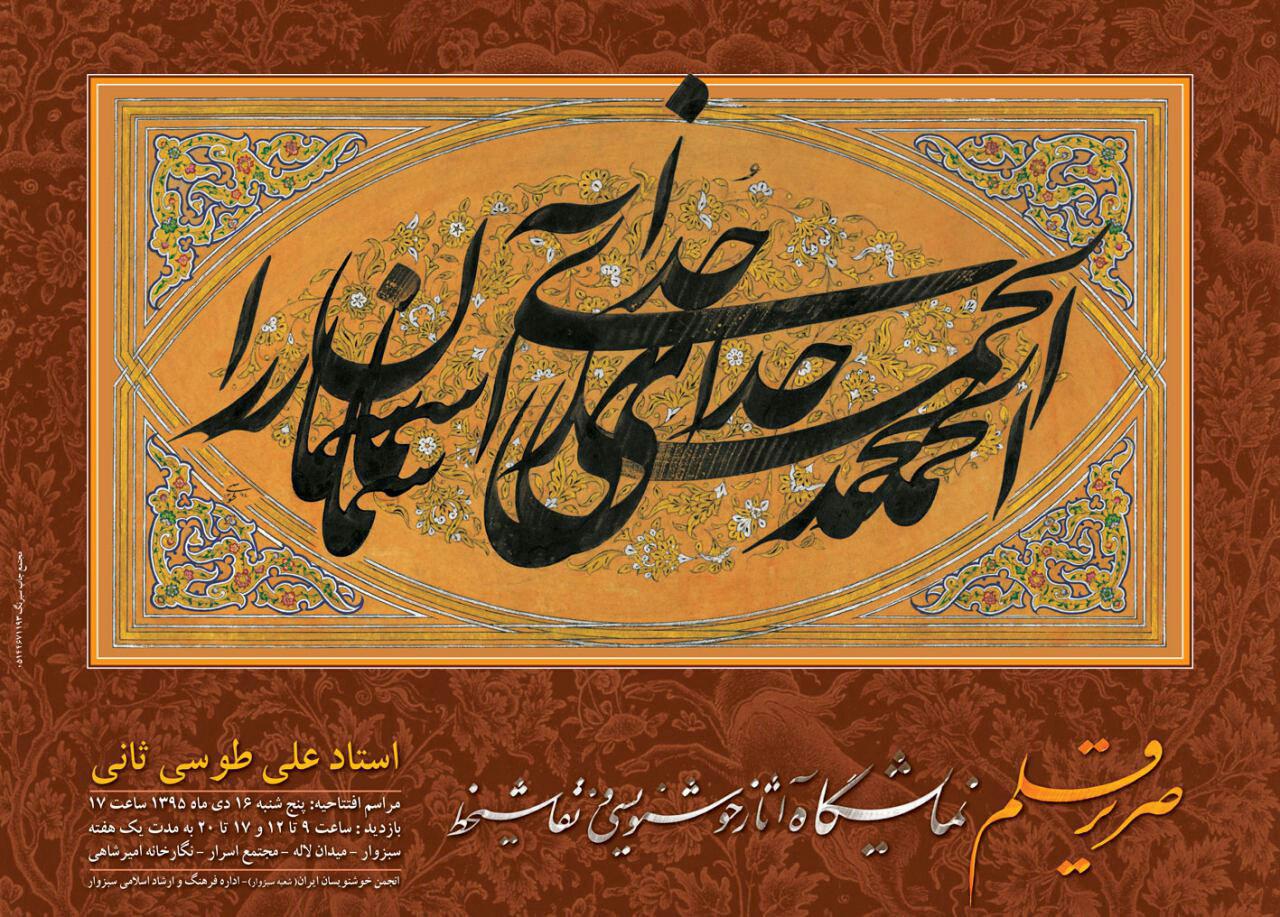 الحمد خدای آسمان را
صریر قلم
نمایشگاه آثار خوشنویسی و نقاشیخط
استاد علی طوسی ثانی
مراسم افتتاحیه: پنج شنبه ۱۶ دی ماه ۱۳۹۵ ساعت ۱۷
بازدید : ساعت ۹ تا ۱۲ و ۱۷ تا ۲۰ به مدت یک هفته
سبزوار - میدان لاله - مجتمع اسرار - نگارخانه امیرشاهی
انجمن خوشنویسان ایران( شعبه سبزوار)- اداره فرهنگ و ارشاد اسلامی سبزوار
مجتمع چاپ ۰۵۱۴۴۶۷۱۱۹۳